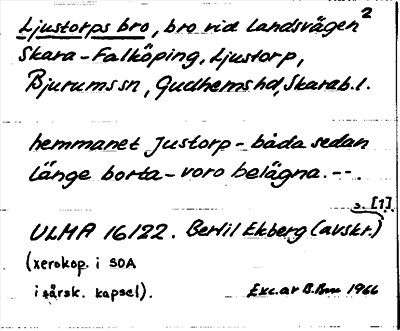 2
Ljustorps bro, bro vid landsvägen
Skara-Falköping, Ljustorp,
Bjurums sn, Gudhems hd, Skarab.l.
hemmanet Justorp - båda sedan
länge borta - voro belägna. --.
s. [1]
ULMA 16122. Bertil Ekberg (avskr.)
(xerokop. i SOA
i särsk. kapsel).
Exc. av B.Bm 1966